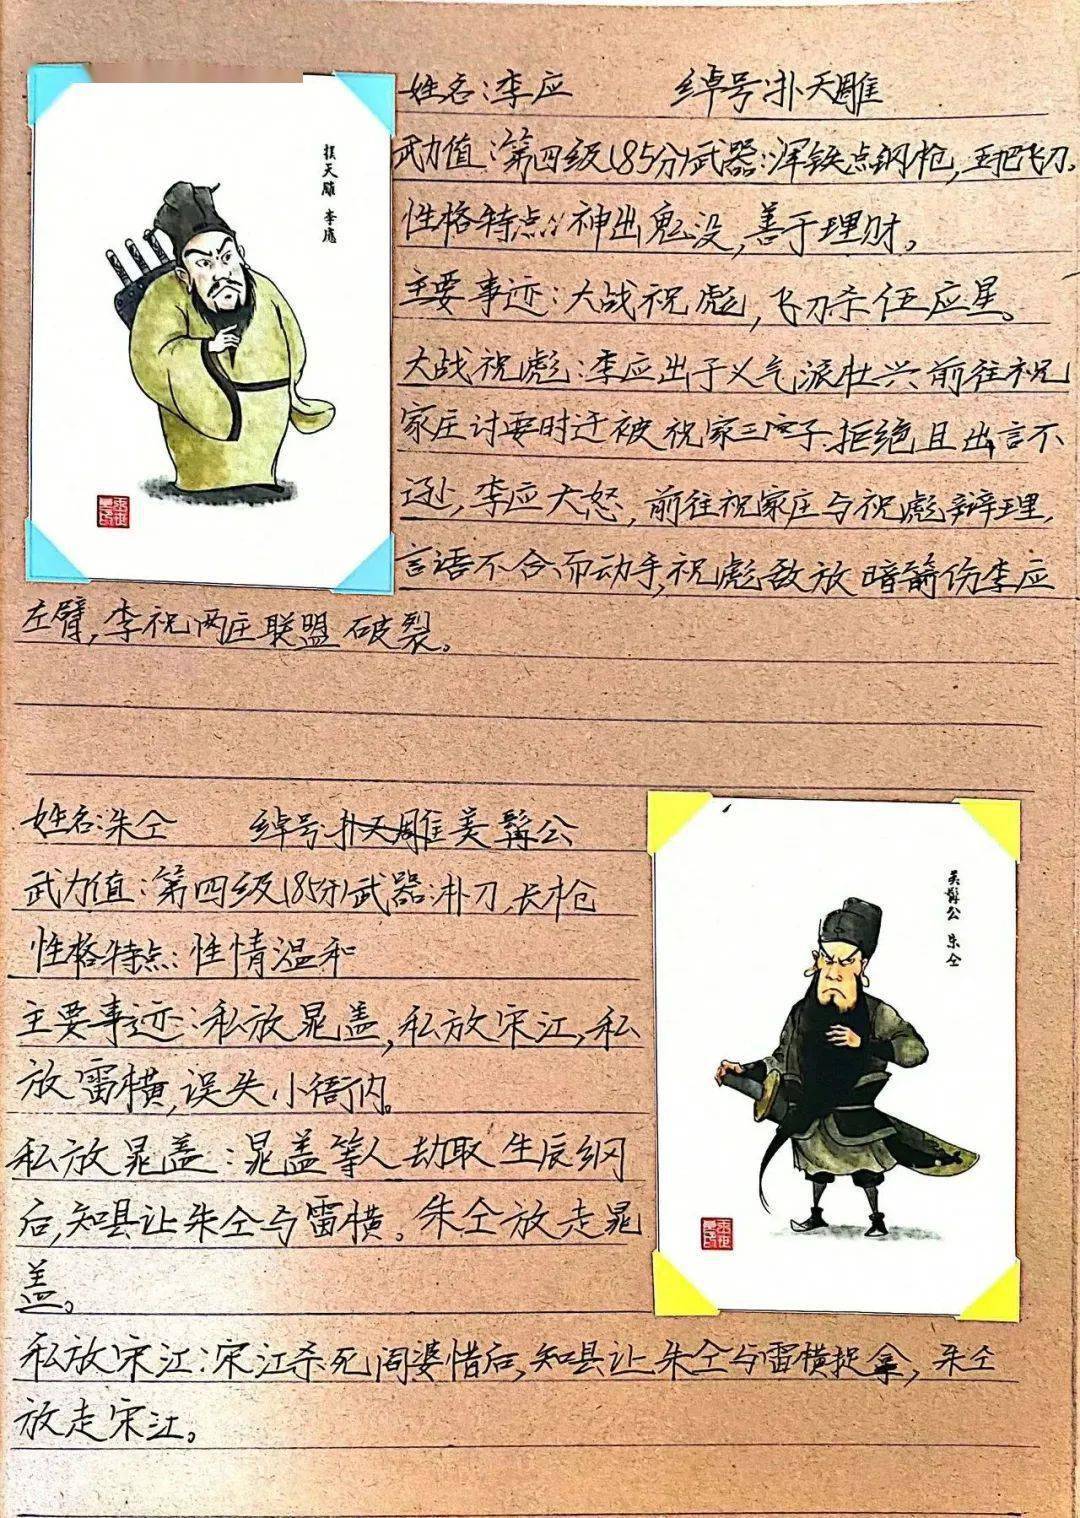 姓名:李应 绰号:扑天雕
武力值:第四级(85分)武器:浑铁点钢枪,五把飞刀。
性格特点:神出鬼没,善于理财。
主要事迹:大战祝彪,飞刀杀伍应星。
大战祝彪:李应出于义气派杜兴前往祝
家庄讨要时迁被祝家三庄子拒绝且出言不
逊,李应大怒,前往祝家庄与祝彪辩理,
言语不合而动手,祝彪敌放暗箭伤李应
左臂,李祝两庄联盟破裂。
扑天雕 李應
姓名:朱仝 绰号:扑天雕美髯公
武力值:第四级(85分)武器:朴刀,长枪
性格特点:性情温和
主要事迹:私放晁盖,私放宋江,私
放雷横,误失小衙内。
私放晁盖:晁盖等人劫取生辰纲
后,知县让朱仝与雷横。朱仝放走晁
盖。
私放宋江:宋江杀死阎婆惜后,知县让朱仝与雷横捉拿,朱仝
放走宋江。
美髯公 朱仝